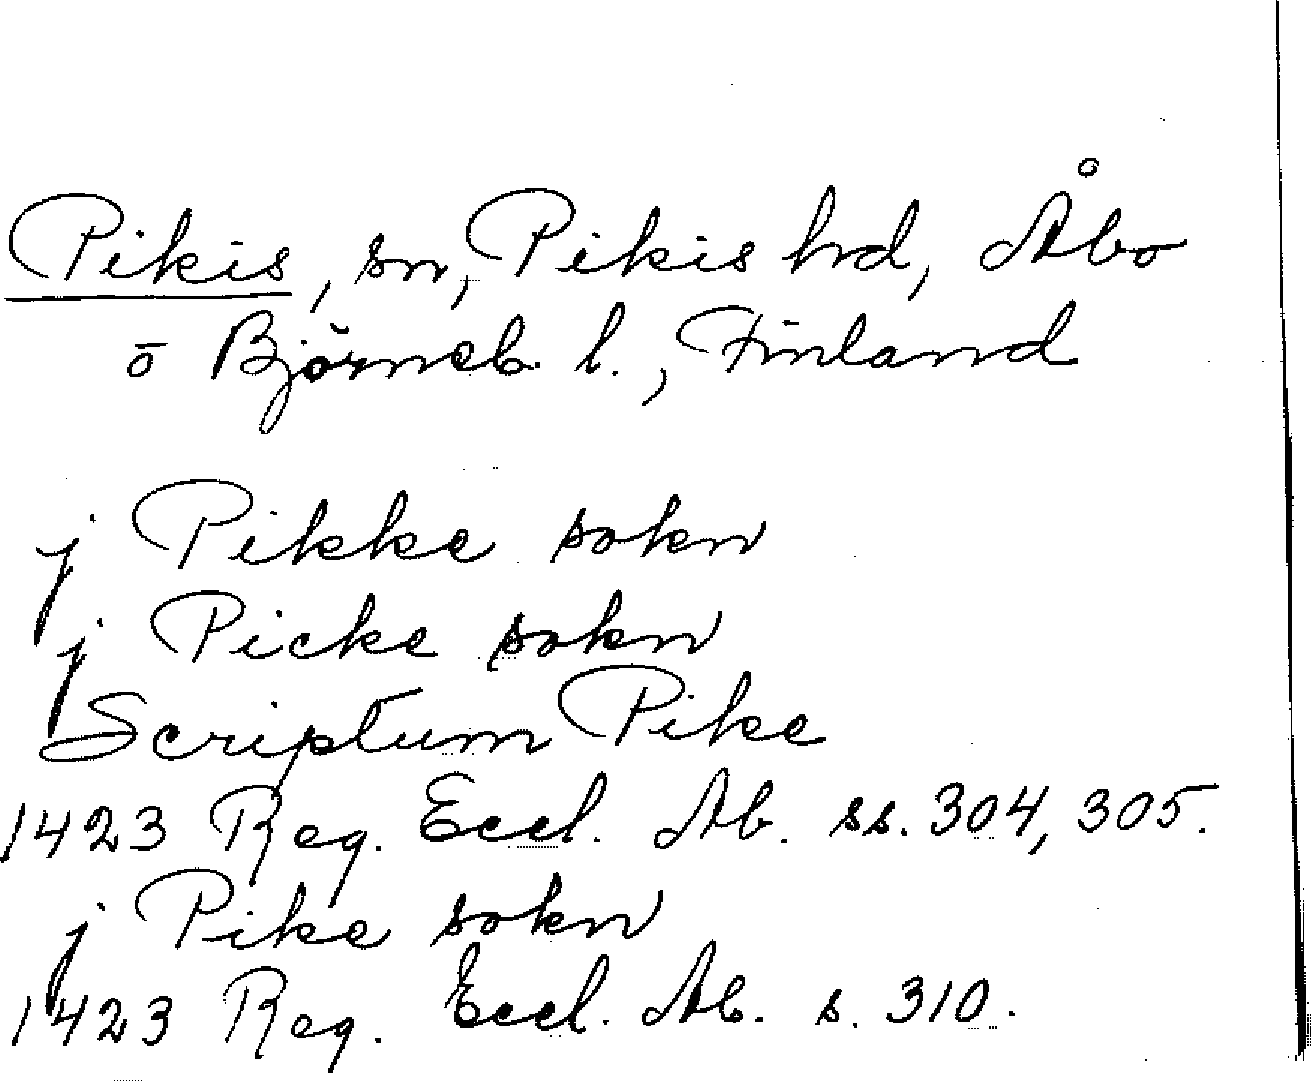 Pikis, sn, Pikis hd, Åbo
o Björneb. l., Finland
j Pikke sokn
j Picke sokn
Scriptum Pike
1423 Reg. Eccl. Ab. ss. 304, 305.
j Pike sokn
1423 Reg. Eccl. Ab. s. 310.